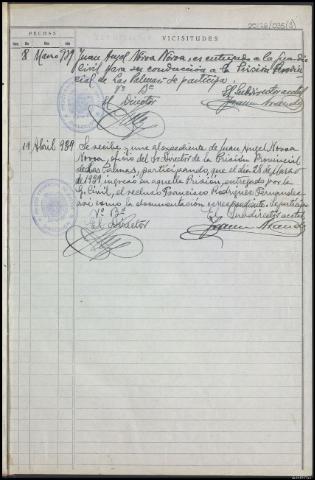 FECHAS
VICISITUDES
Día
Mes
Año
8 Marzo 939 Juan Angel Novoa Novoa, es entregado a la Guardia
Civil para ser conducción a la Prisión Provin-
cial de Las Palmas. Se participa.
Vº Bº
El Director
El Subdirector acctal
14 Abril 939 Se recibe y une al expediente de Juan Angel Novoa
Novoa, oficio del Sr. Director de la Prisión Provincial
de Las Palmas, participando, que el día 28 de Marzo
de 1939 ingresó en aquella Prisión, entregado por la
G. Civil, el recluso Francisco Rodríguez Fernandez
así como la documentación correspondiente. Se participa
Vº Bº
El Subdirector acctal
El Director